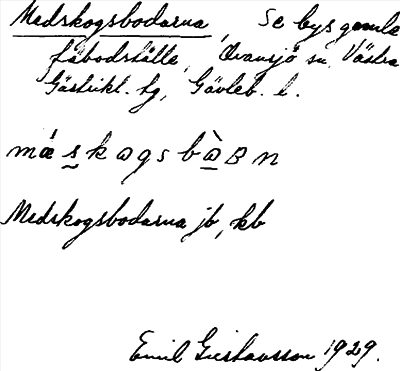 Medskogsbodarna, Se bys gamla
fäbodställe, Ovansjö sn. Västra
Gästrikl. tg, Gävleb. l.
Medskogsbodarna jb, kb
Emil Gustavsson 1929.